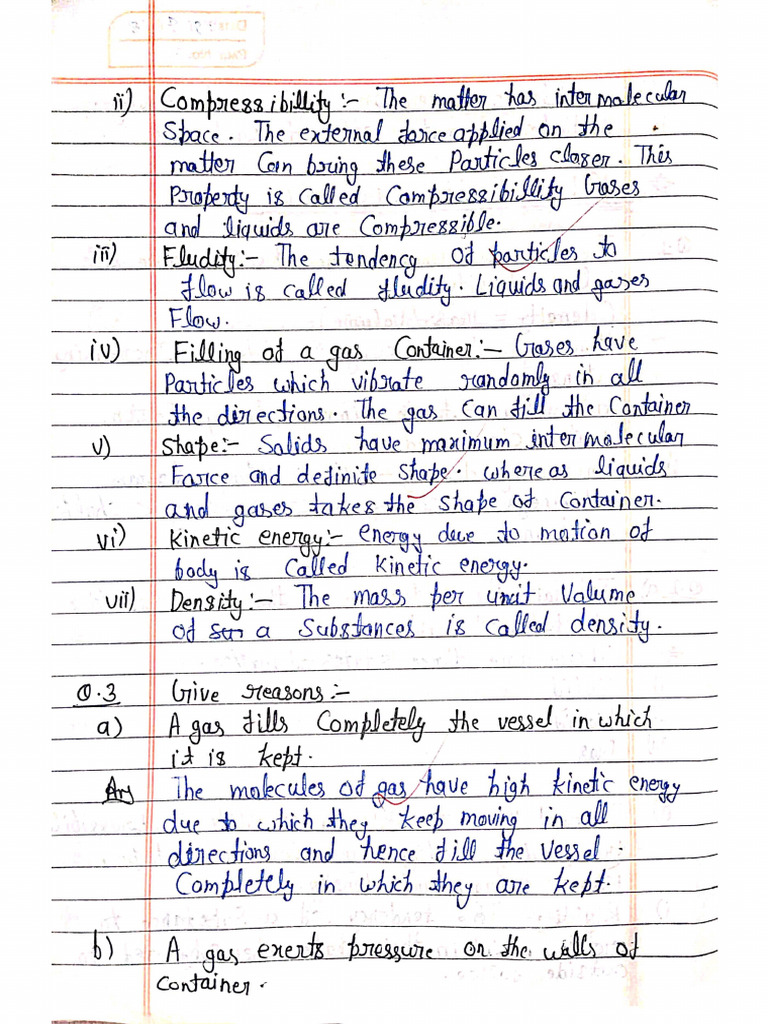 ii) Compressibillity:- The matter has intermolecular
Space. The external force applied on the
matter Can bring these Particles closer. This
Property is called Compressibillity Gases
and liquids are Compressible.
iii) Fludity:- The tendency of particles to
flow is called fludity. Liquids and gases
Flow.
iv) Filling of a gas Container:- Gases have
Particles which vibrate randomly in all
the directions. The gas Can fill the Container
v) Shape:- Solids have maximum intermolecular
Farce and definite shape. whereas liquids
and gases takes the shape of Container.
vi) Kinetic energy:- energy due to motion of
body is Called kinetic energy.
vii) Density:- The mass per unit Volume
of a Substances is Called density.
Q.3 Give reasons:-
a) A gas fills Completely the vessel in which
it is kept.
Ans The molecules of gas have high kinetic energy
due to which they keep moving in all
directions and hence fill the vessel
Completely in which they are kept.
b) A gas exerts pressure on the walls of
Container.